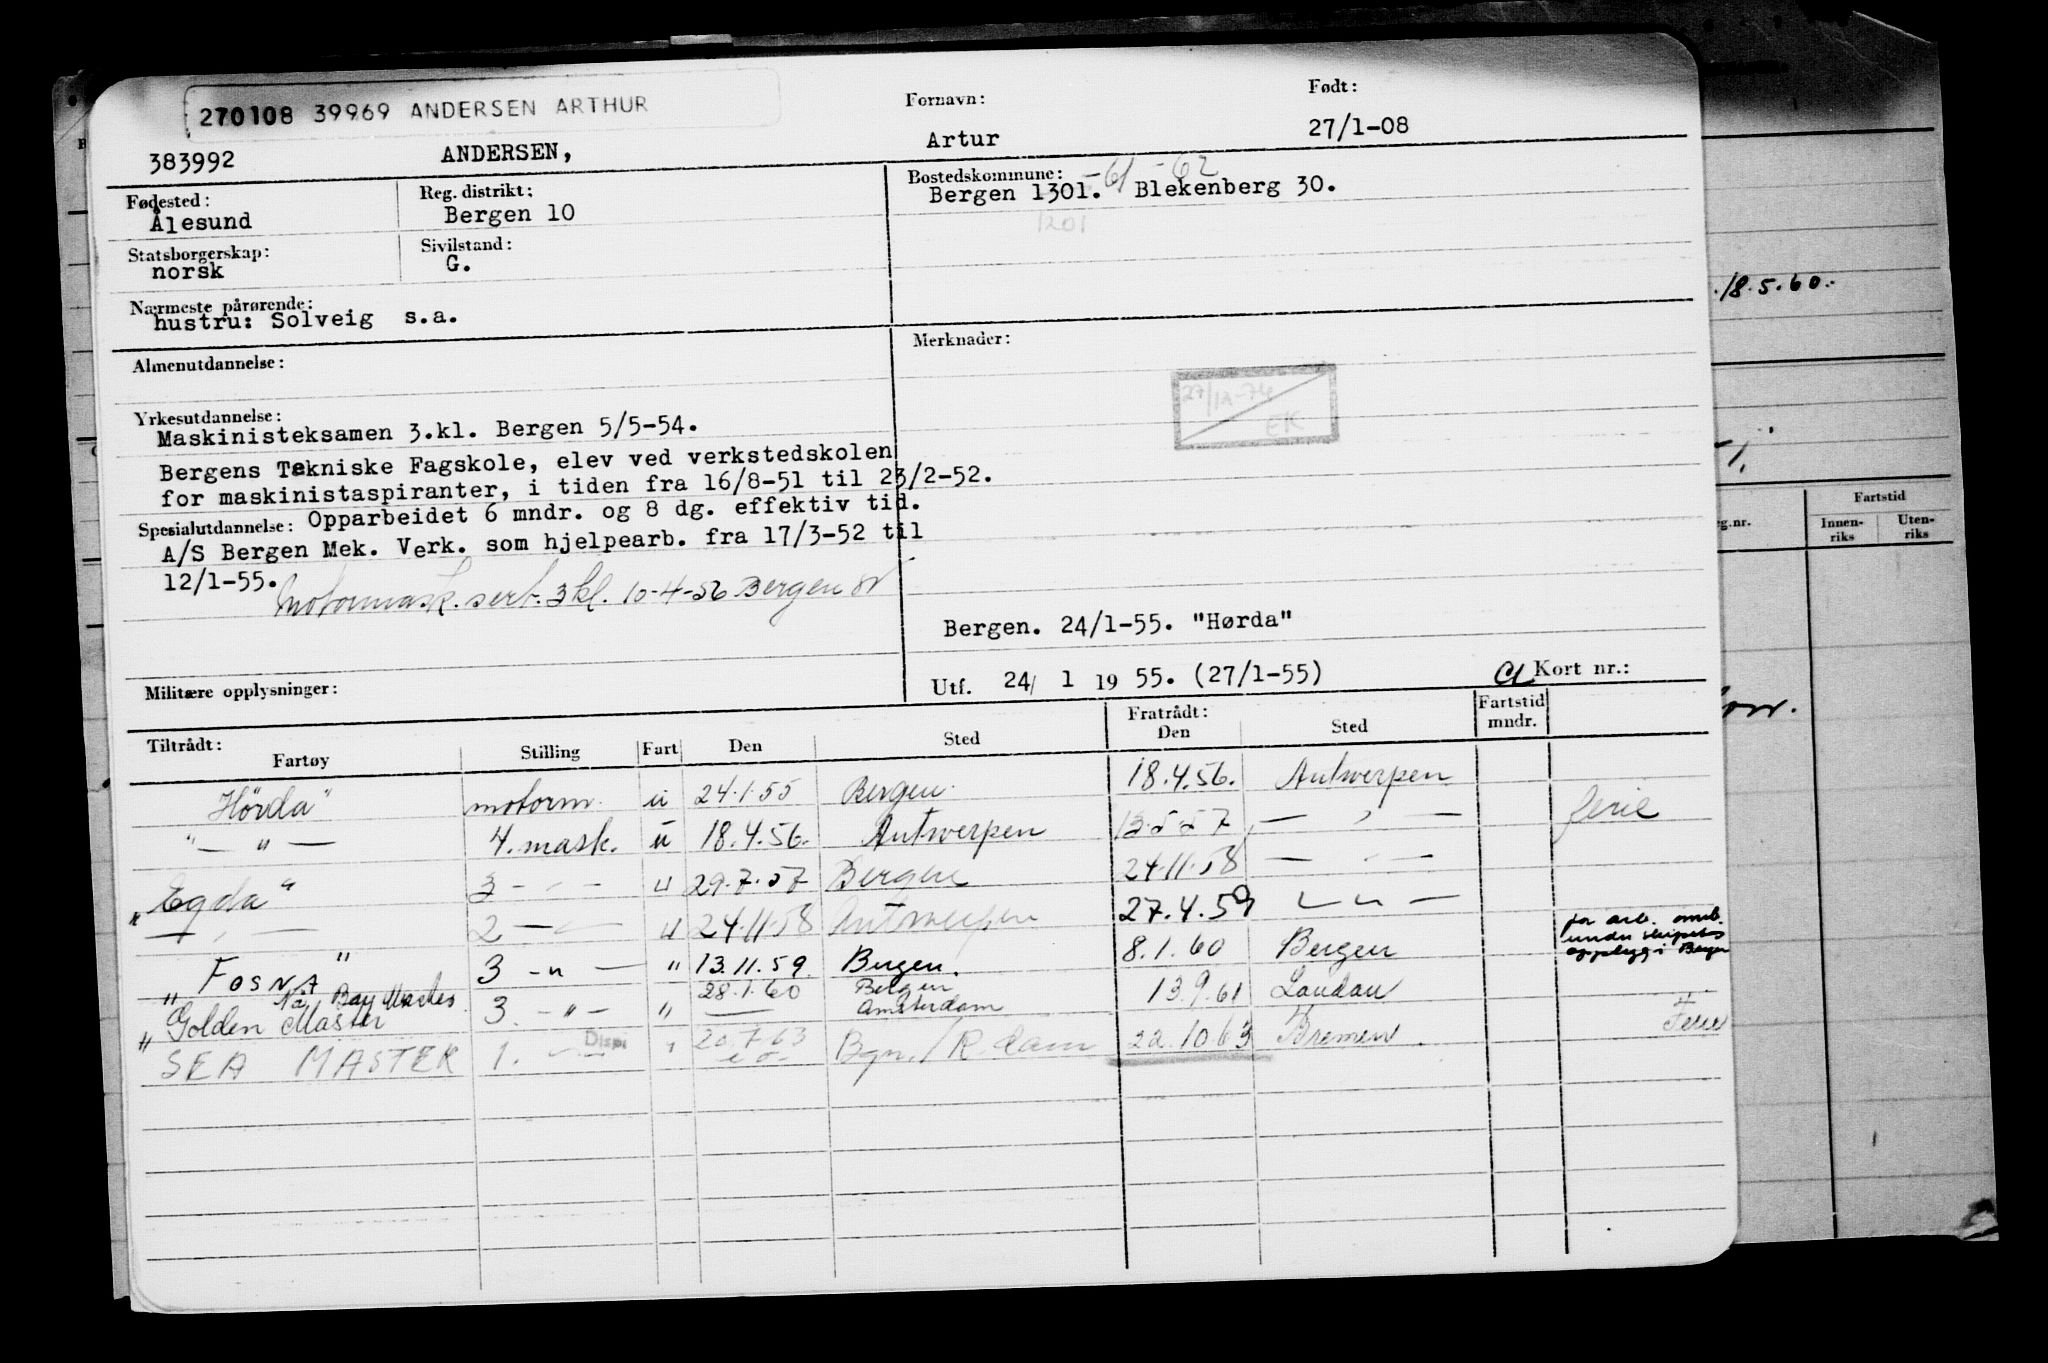 270108 39969 ANDERSEN ARTHUR
Fornavn:
Født:
383992 ANDERSEN, Artur 27/1-08
Fødested:
Ålesund
Reg. distrikt:
Bergen 10
Bostedskommune: -61 -62
Bergen 1301. Blekenberg 30.
1201
Statsborgerskap:
norsk
Sivilstand:
G.
Nærmeste pårørende:
hustru: Solveig s.a.
Almenutdannelse:
Merknader:
27/12-74
EK
Yrkesutdannelse:
Maskinisteksamen 3.kl. Bergen 5/5-54.
Bergens Tekniske Fagskole, elev ved verkstedskolen
for maskinistaspiranter, i tiden fra 16/8-51 til 23/2-52.
Spesialutdannelse: Opparbeidet 6 mndr. og 8 dg. effektiv tid.
A/S Bergen Mek. Verk. som hjelpearb. fra 17/3-52 til
12/1-55.
Motormask. sert. 3 kl. 10-4-56 Bergen
Bergen. 24/1-55. "Hørda"
Militære opplysninger:
Utf. 24/ 1 19 55. (27/1-55) Kort nr.:
Tiltrådt:
Fartøy Stilling Fart Den Sted
Fratrådt:
Den Sted
Fartstid
mndr.
Hörda" motorm. u 24.1.55 Bergen. 18.4.56. Antwerpen
" — " — 4. mask. u 18.4.56. Antwerpen 13.5.57 — " — ferie
"Egda" 3 - " - " 29.7.57 Bergen 24.11.58 — " —
— " — 2 — " — " 24.11.58 Antwerpen 27.4.59 — " —
"FOSNA" 3 - " - " 13.11.59. Bergen. 8.1.60 Bergen
for arb. omb.
under skipets
opplegg i Bergen
Bay Master 28.1.60 Bergen
"Golden Master 3. - " - " — Amsterdam 13.9.61 Landau
SEA MASTER 1. — " — Disp " 20.7.63 Bgn./R.dam 22.10.63 Bremen. Ferie
18.5.60.
g.nr.
Fartstid
Innen-
riks
Uten-
riks